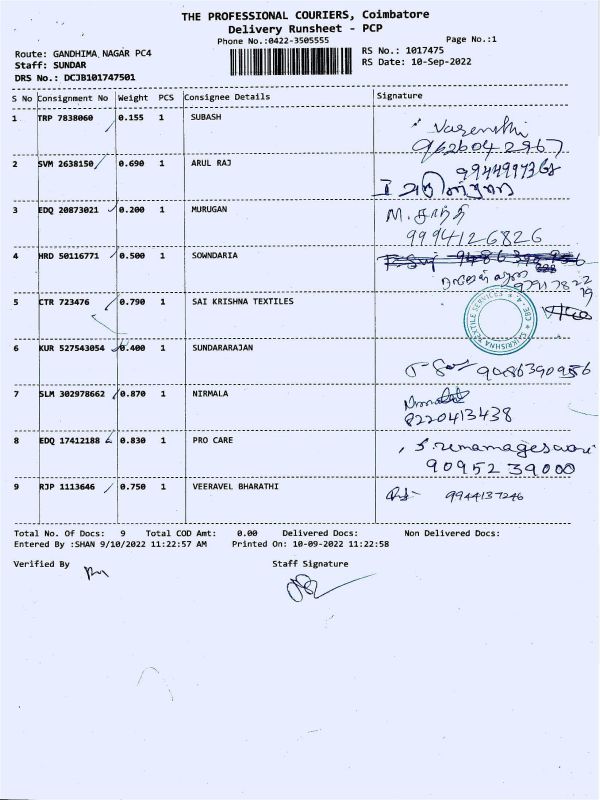 THE PROFESSIONAL COURIERS, Coimbatore
Delivery Runsheet - PCP
Phone No.:0422-3505555
Page No.:1
Route: GANDHIMA NAGAR PC4
RS No.: 1017475
Staff: SUNDAR
RS Date: 10-Sep-2022
DRS No.: DCJB101747501
S No Consignment No Weight PCS Consignee Details Signature
1 TRP 7838060 0.155 1 SUBASH
9626042967
2 SVM 2638150 0.690 1 ARUL RAJ
3 EDQ 20873021 0.200 1 MURUGAN
M. சாந்தி
9994126826
4 HRD 50116771 0.500 1 SOWNDARIA
5 CTR 723476 0.790 1 SAI KRISHNA TEXTILES
6 KUR 527543054 0.400 1 SUNDARARAJAN
9086390956
7 SLM 302978662 0.870 1 NIRMALA
8220413438
8 EDQ 17412188 0.830 1 PRO CARE
9095239000
9 RJP 1113646 0.750 1 VEERAVEL BHARATHI
9944137246
Total No. Of Docs: 9 Total COD Amt: 0.00 Delivered Docs: Non Delivered Docs:
Entered By :SHAN 9/10/2022 11:22:57 AM Printed On: 10-09-2022 11:22:58
Verified By Staff Signature